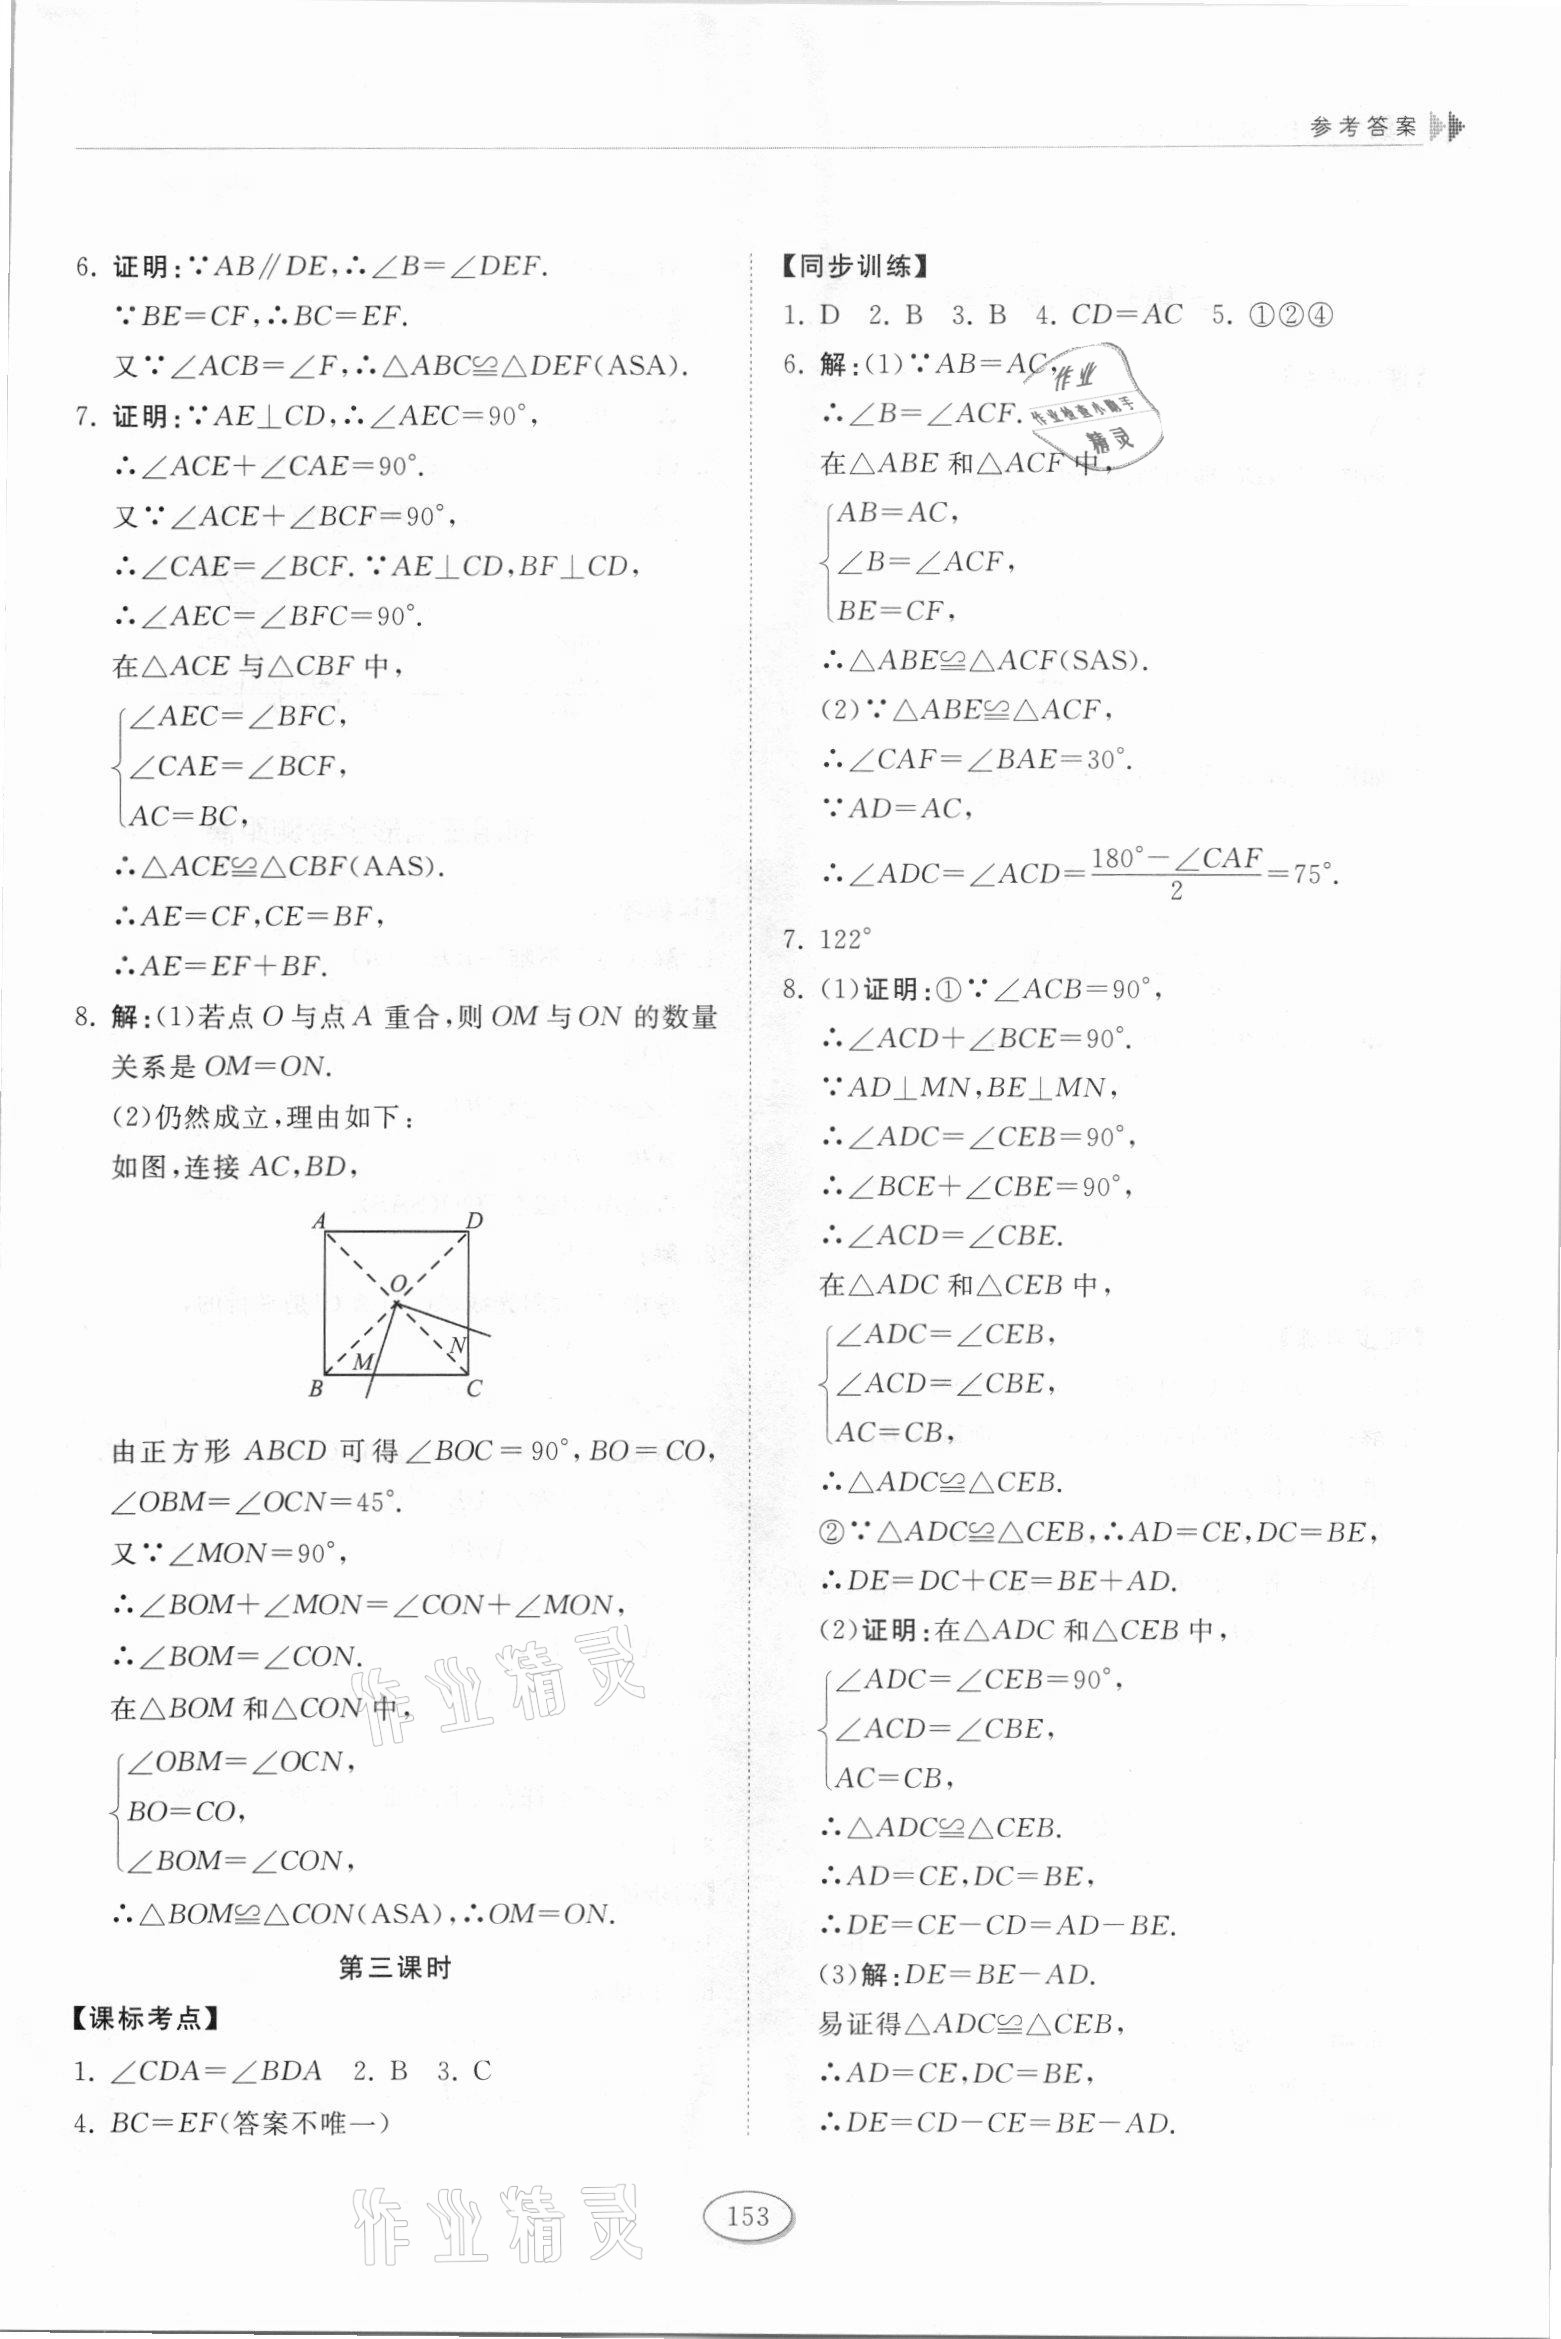 参考答案
6. 证明:∵AB∥DE,∴∠B=∠DEF.
∵BE=CF,∴BC=EF.
又∵∠ACB=∠F,∴△ABC≌△DEF(ASA).
7. 证明:∵AE⊥CD,∴∠AEC=90°,
∴∠ACE+∠CAE=90°.
又∵∠ACE+∠BCF=90°,
∴∠CAE=∠BCF.∵AE⊥CD,BF⊥CD,
∴∠AEC=∠BFC=90°.
在△ACE 与△CBF 中,
∠AEC=∠BFC,
∠CAE=∠BCF,
AC=BC,
∴△ACE≌△CBF(AAS).
∴AE=CF,CE=BF,
∴AE=EF+BF.
8. 解:(1)若点 O 与点 A 重合,则 OM 与 ON 的数量
关系是 OM=ON.
(2)仍然成立,理由如下:
如图,连接 AC,BD,
A D
O
M N
B C
由正方形 ABCD 可得∠BOC=90°,BO=CO,
∠OBM=∠OCN=45°.
又∵∠MON=90°,
∴∠BOM+∠MON=∠CON+∠MON,
∴∠BOM=∠CON.
在△BOM 和△CON 中,
∠OBM=∠OCN,
BO=CO,
∠BOM=∠CON,
∴△BOM≌△CON(ASA),∴OM=ON.
第三课时
【课标考点】
1. ∠CDA=∠BDA 2. B 3. C
4. BC=EF(答案不唯一)
【同步训练】
1. D 2. B 3. B 4. CD=AC 5. ①②④
6. 解:(1)∵AB=AC,
∴∠B=∠ACF.
在△ABE 和△ACF 中,
AB=AC,
∠B=∠ACF,
BE=CF,
∴△ABE≌△ACF(SAS).
(2)∵△ABE≌△ACF,
∴∠CAF=∠BAE=30°.
∵AD=AC,
∴∠ADC=∠ACD=(180°-∠CAF)/2=75°.
7. 122°
8. (1)证明:①∵∠ACB=90°,
∴∠ACD+∠BCE=90°.
∵AD⊥MN,BE⊥MN,
∴∠ADC=∠CEB=90°,
∴∠BCE+∠CBE=90°,
∴∠ACD=∠CBE.
在△ADC 和△CEB 中,
∠ADC=∠CEB,
∠ACD=∠CBE,
AC=CB,
∴△ADC≌△CEB.
②∵△ADC≌△CEB,∴AD=CE,DC=BE,
∴DE=DC+CE=BE+AD.
(2)证明:在△ADC 和△CEB 中,
∠ADC=∠CEB=90°,
∠ACD=∠CBE,
AC=CB,
∴△ADC≌△CEB.
∴AD=CE,DC=BE,
∴DE=CE-CD=AD-BE.
(3)解:DE=BE-AD.
易证得△ADC≌△CEB,
∴AD=CE,DC=BE,
∴DE=CD-CE=BE-AD.
153
作业
作业检查小助手
精灵
作业精灵
作业精灵